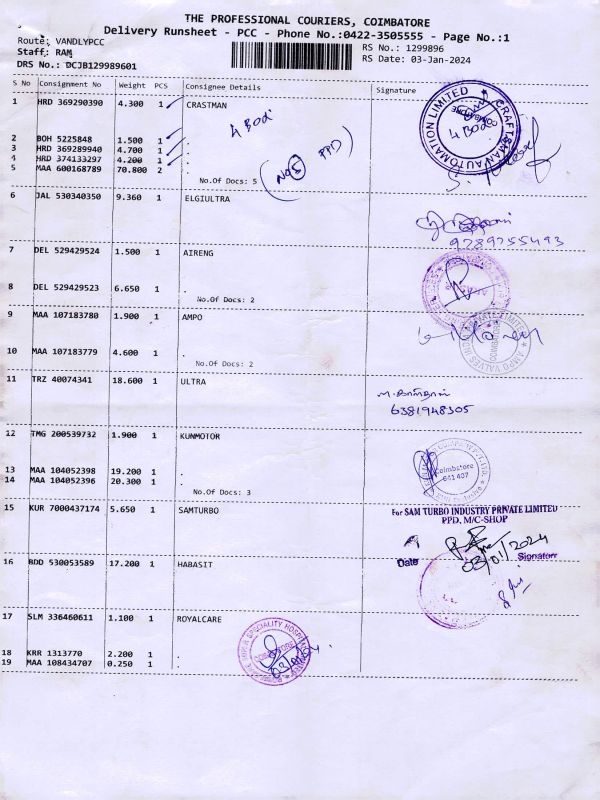 THE PROFESSIONAL COURIERS, COIMBATORE
Delivery Runsheet - PCC - Phone No.:0422-3505555 - Page No.:1
Route: VANDLYPCC
RS No.: 1299896
Staff: RAM
RS Date: 03-Jan-2024
DRS No.: DCJB129989601
S No Consignment No Weight PCS Consignee Details Signature
1 HRD 369290390 4.300 1 CRASTMAN
4 Box
CRAFTSMAN AUTOMATION LIMITED
4 Box
2 BOH 5225848 1.500 1 .
3 HRD 369289940 4.700 1 .
4 HRD 374133297 4.200 1 .
5 MAA 600168789 70.800 2 .
No.Of Docs: 5
PPD
6 JAL 530340350 9.360 1 ELGIULTRA
9789755493
7 DEL 529429524 1.500 1 AIRENG
8 DEL 529429523 6.650 1 .
No.Of Docs: 2
9 MAA 107183780 1.900 1 AMPO
AMPO VALVES
10 MAA 107183779 4.600 1 .
No.Of Docs: 2
11 TRZ 40074341 18.600 1 ULTRA
6381948305
12 TMG 200539732 1.900 1 KUNMOTOR
Coimbatore
641 407
13 MAA 104052398 19.200 1 .
14 MAA 104052396 20.300 1 .
No.Of Docs: 3
15 KUR 7000437174 5.650 1 SAMTURBO
For SAM TURBO INDUSTRY PRIVATE LIMITED
PPD, M/C-SHOP
Date Signature
03/01/2024
16 BDD 530053589 17.200 1 HABASIT
17 SLM 336460611 1.100 1 ROYALCARE
SPECIALITY HOSPITAL
18 KRR 1313770 2.200 1 .
19 MAA 108434707 0.250 1 .